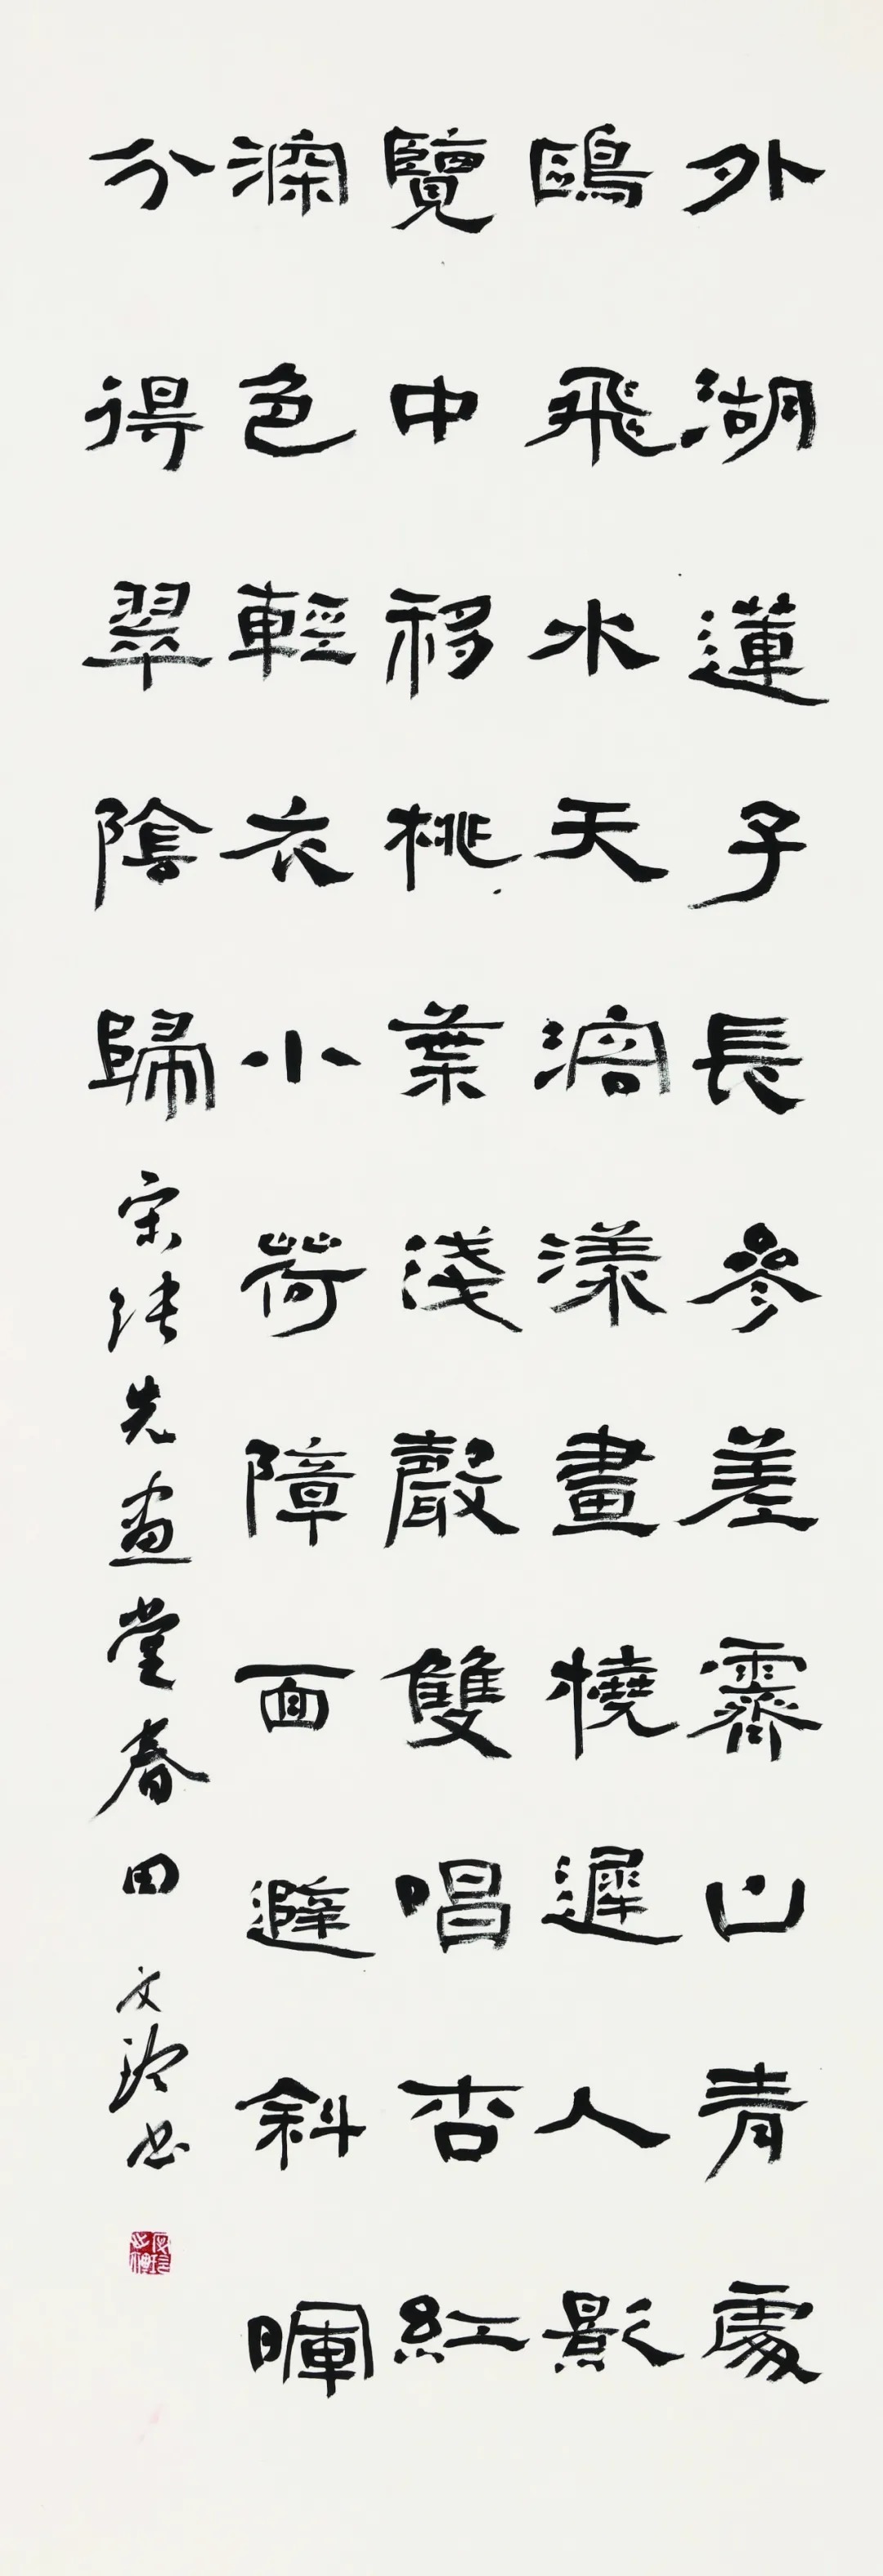 外湖蓮子長參差霽山青處
鷗飛水天溶漾畫橈遲人影
覽中移桃葉淺聲雙唱杏紅
深色輕衣小荷障面避斜暉
分得翠陰歸 宋張先畫堂春 田文玲書